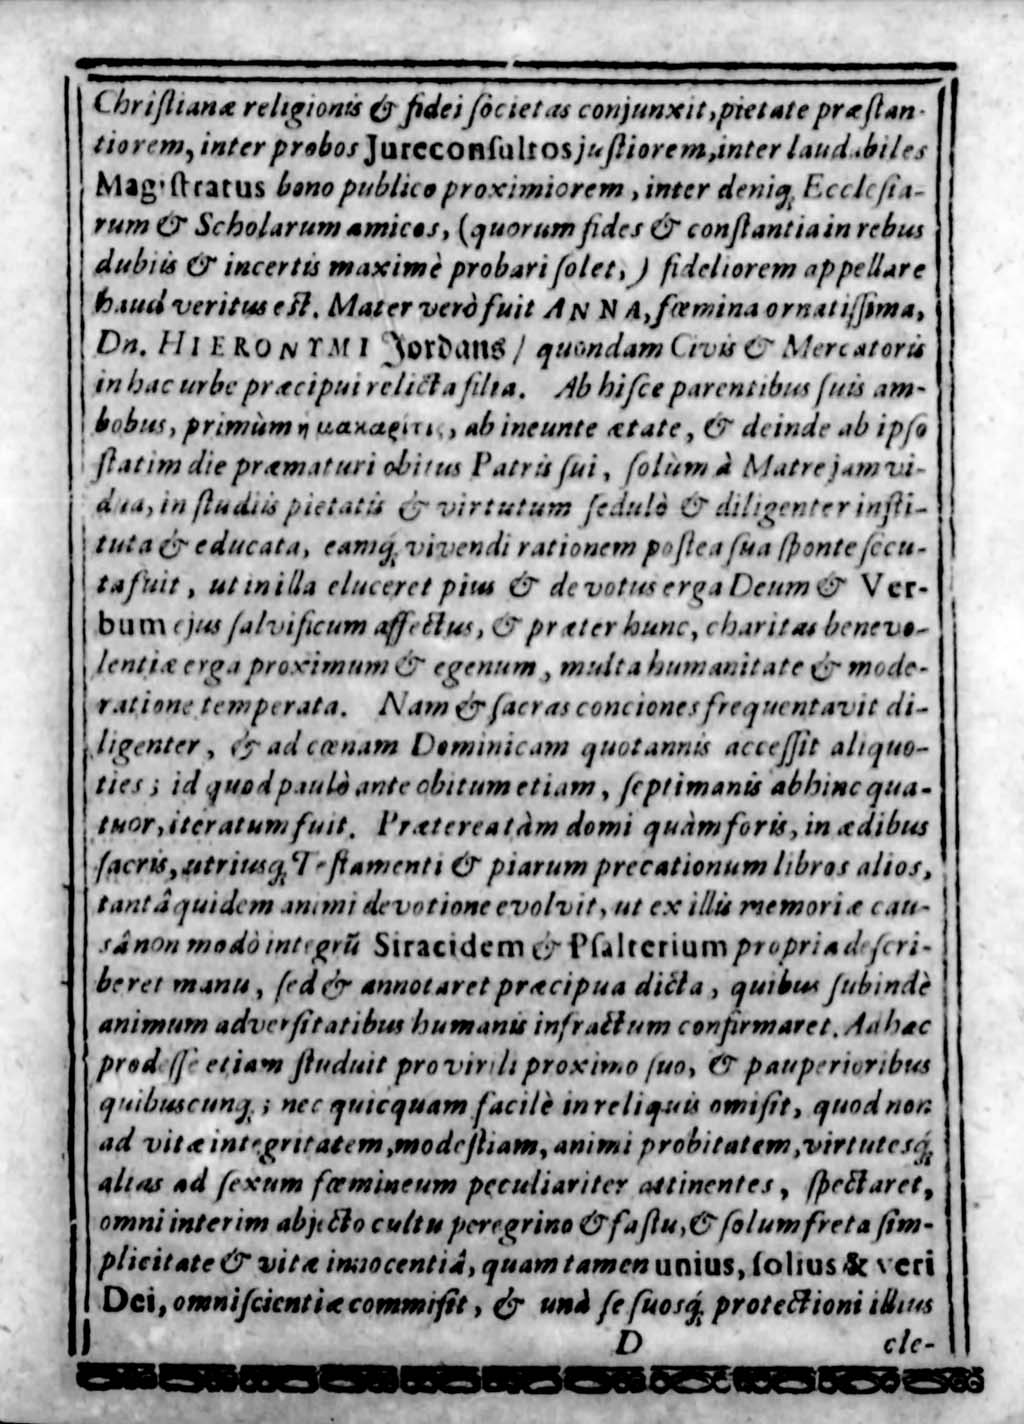 Chriſtianæ religionis & fidei ſocietas conjunxit, pietate præſtan-
tiorem, inter probos Jureconſultos juſtiorem, inter laudabiles
Magiſtratus bono publico proximiorem, inter deniq; Eccleſia-
rum & Scholarum amicos, (quorum fides & conſtantia in rebus
dubiis & incertis maximè probari ſolet,) fideliorem appellare
haud veritus eſt. Mater verò fuit ANNA, fœmina ornatiſſima,
Dn. HIERONYMI Jordans / quondam Civis & Mercatoris
in hac urbe præcipui relicta filia. Ab hiſce parentibus ſuis am-
bobus, primùm η μακαρίτις, ab ineunte ætate, & deinde ab ipſo
ſtatim die præmaturi obitus Patris ſui, ſolùm à Matre jam vi-
dua, in ſtudiis pietatis & virtutum ſedulò & diligenter inſti-
tuta & educata, eamq́; vivendi rationem poſtea ſua ſponte ſecu-
ta fuit, ut in illa eluceret pius & devotus erga Deum & Ver-
bum ejus ſalvificum affectus, & præter hunc, charitas benevo-
lentiæ erga proximum & egenum, multa humanitate & mode-
ratione temperata. Nam & ſacras conciones frequentavit di-
ligenter, & ad cœnam Dominicam quotannis acceſſit aliquo-
ties; id quod paulò ante obitum etiam, ſeptimanis abhinc qua-
tuor, iteratum fuit. Præterea tàm domi quàm foris, in ædibus
ſacris, utriusq; Teſtamenti & piarum precationum libros alios,
tantâ quidem animi devotione evolvit, ut ex illis memoriæ cau-
sâ non modò integrũ Siracidem & Pſalterium propria deſcri-
beret manu, ſed & annotaret præcipua dicta, quibus ſubindè
animum adverſitatibus humanis infractum confirmaret. Ad hæc
prodeſſe etiam ſtuduit pro virili proximo ſuo, & pauperioribus
quibuscunq; ; nec quicquam facilè in reliquis omiſit, quod non
ad vitæ integritatem, modeſtiam, animi probitatem, virtutesq́;
alias ad ſexum fœmineum peculiariter attinentes, ſpectaret,
omni interim abjecto cultu peregrino & faſtu, & ſolum freta ſim-
plicitate & vitæ innocentiâ, quam tamen unius, ſolius & veri
Dei, omniſcientiæ commiſit, & unà ſe ſuosq́; protectioni illius
D cle-